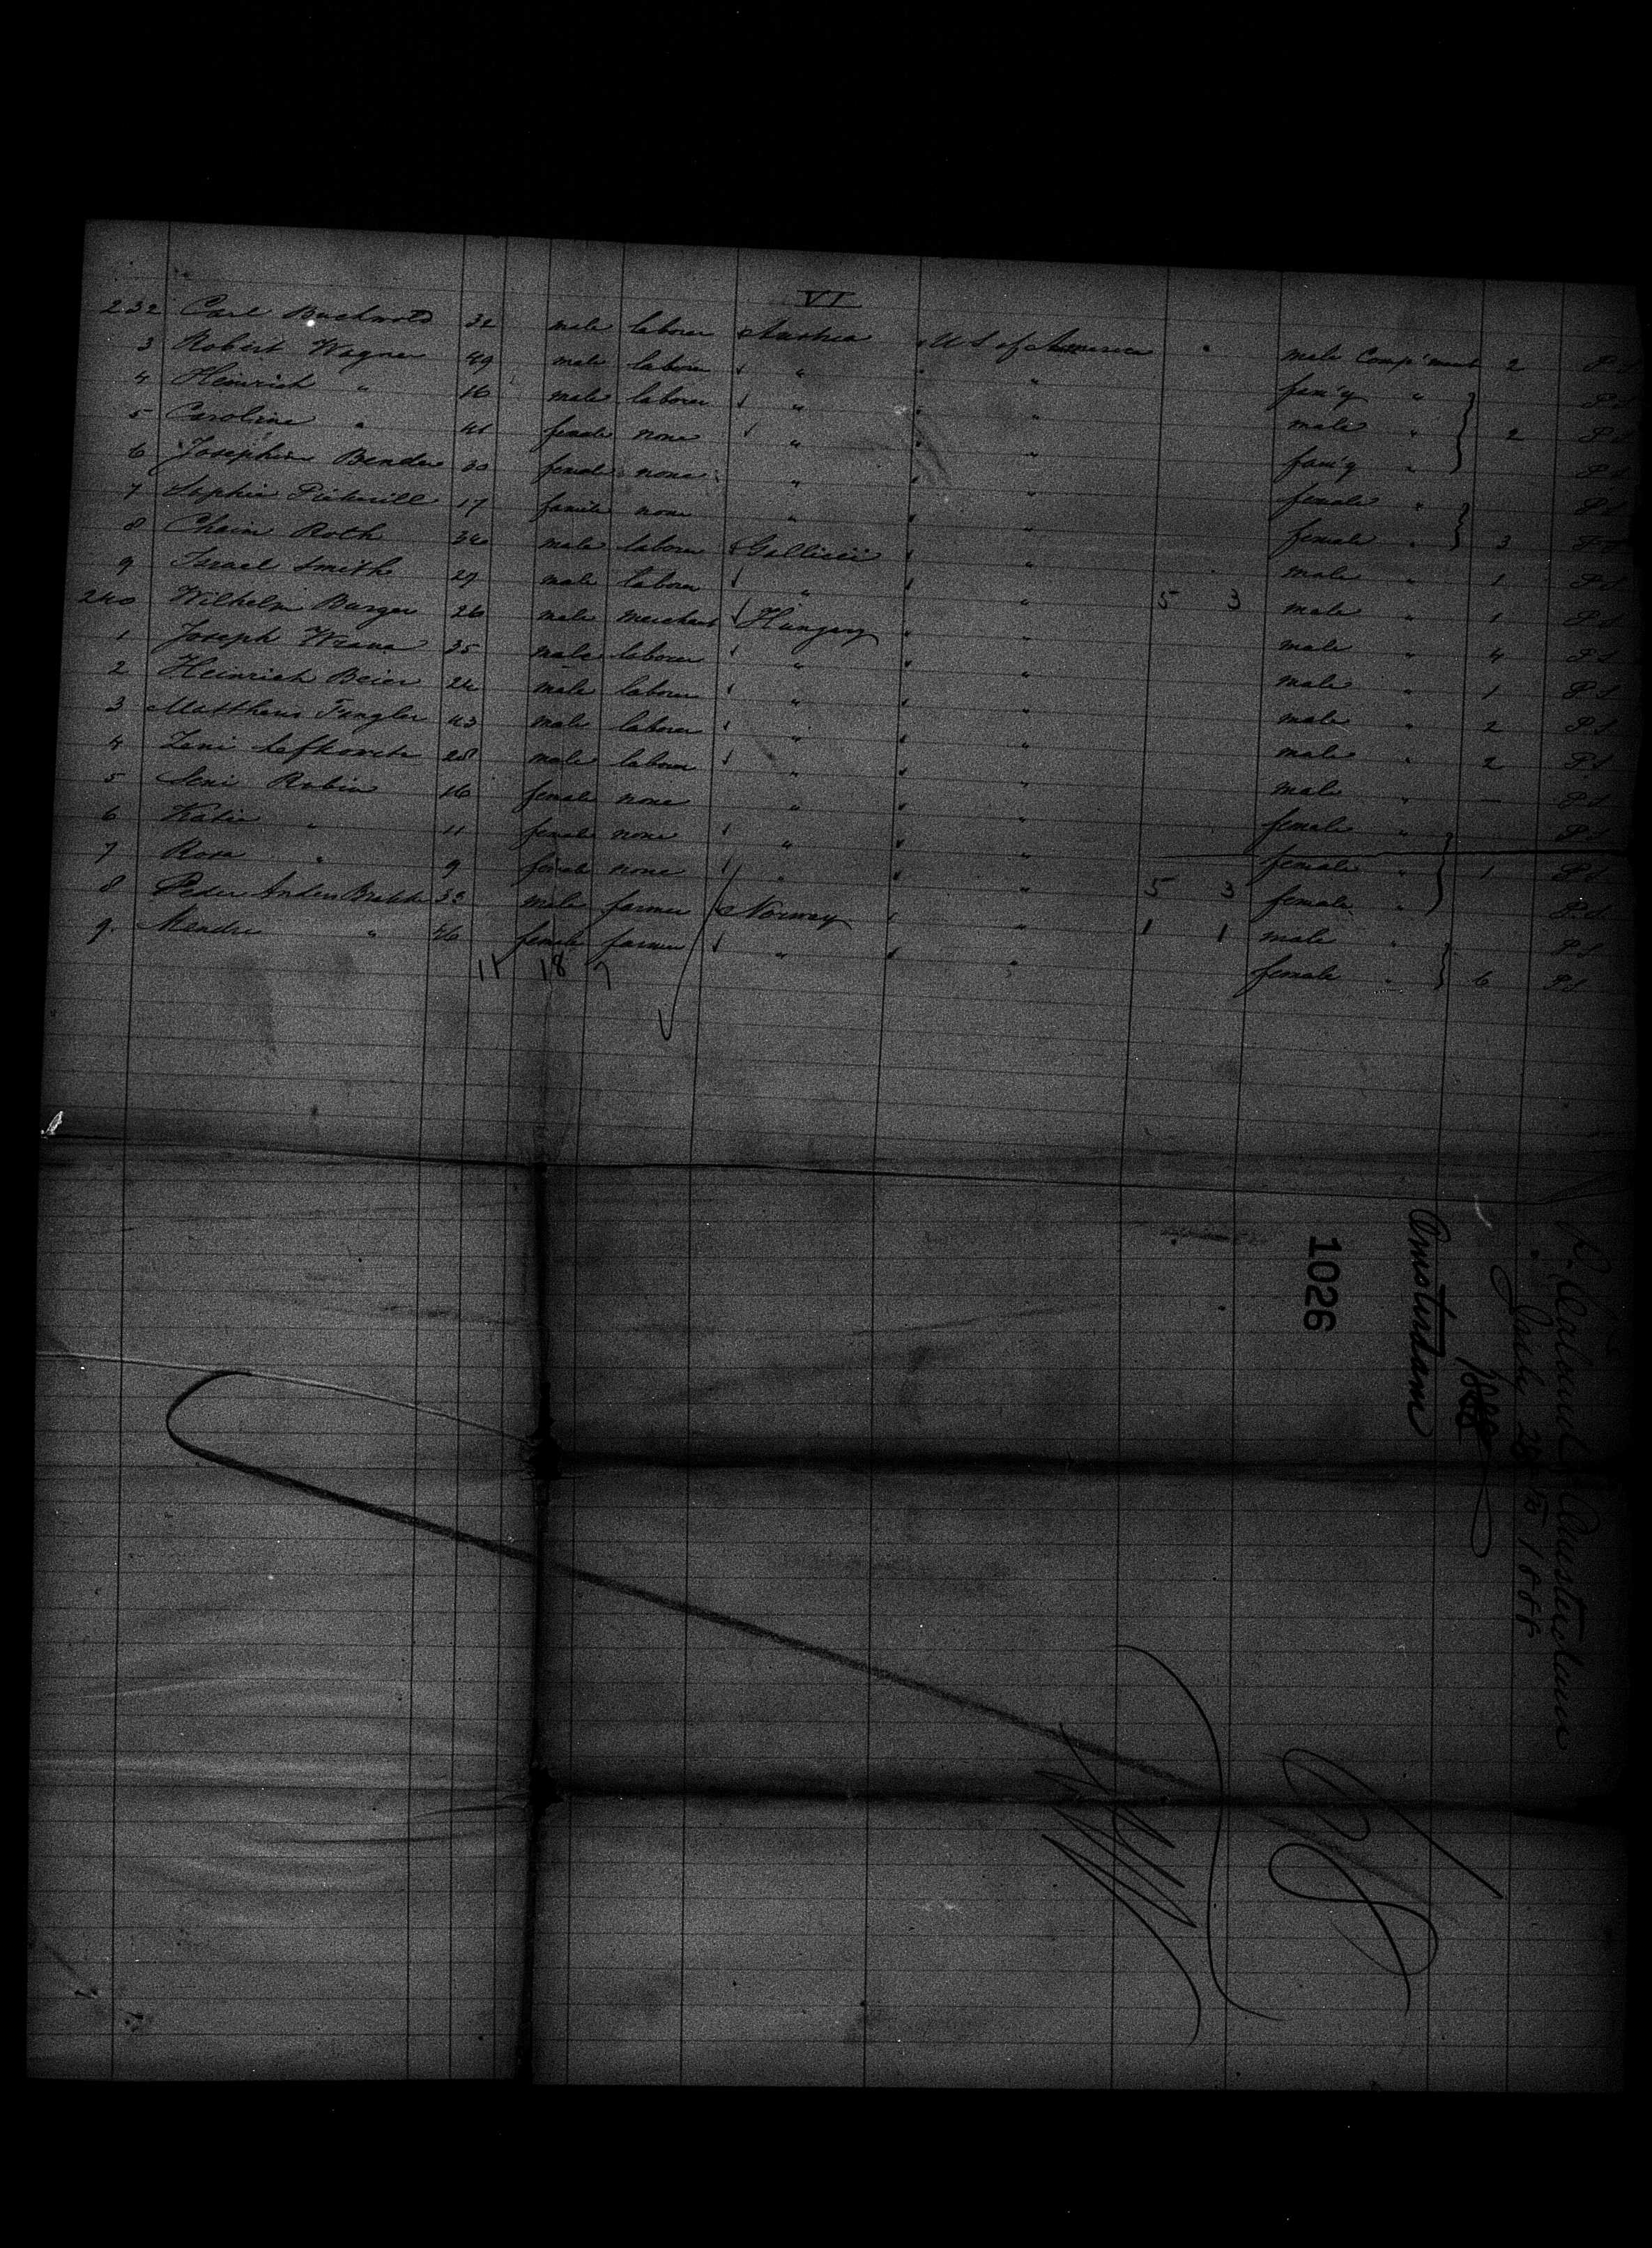 VI
232 Carl Buchwold 32 male laborer Austria U S of America male Comp'ment 2 P S
3 Robert Wagner 49 male laborer " " fam'y " P S
4 Heinrich " 16 male laborer " " male " 2 P S
5 Caroline " 41 female none " " fam'y " P S
6 Josephine Bender 30 female none " " female " P S
7 Sophie 17 female none " " female " 3 P S
8 Chaim Roth 34 male laborer Gallicii " male " 1 P S
9 Israel Smith 29 male laborer " " 5 3 male " 1 P S
240 Wilhelm Burger 26 male merchant Hungary " male " 4 P S
1 Joseph Wrana 35 male laborer " " male " 1 P S
2 Heinrich Beier 24 male laborer " " male " 2 P S
3 Mattheus Tungler 43 male laborer " " male " 2 P S
4 Lefkovits 28 male laborer " " male " — P S
5 Leni Rubin 16 female none " " female " P S
6 Katie " 11 female none " " female " 1 P S
7 Rosa " 9 female none " " 5 3 female " P. S.
8 Peder Anders 32 male farmer Norway " 1 1 male " P S
9. " 46 female farmer " " female " 6 P S
11 18 7
Amsterdam
July 28th 1888
1888
Amsterdam
1026